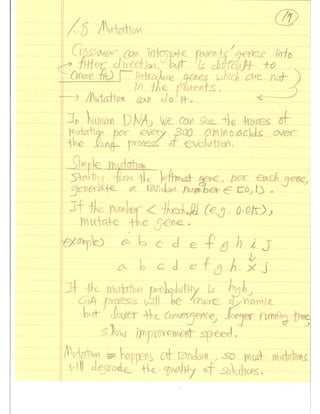 19
1.8 Mutation
Crossover can integrate parents' genes into
→ fitter direction, but is difficult to
(more fit) introduce genes which are not
in the parents.
→ Mutation can do it. ←
In human DNA, we can see the traces of
mutation per every 300 amino acids over
the long process of evolution.
Simple mutation
Starting from the leftmost gene, per each gene,
generate a random number ∈ [0,1).
If the number < threshold (e.g. 0.015),
mutate the gene.
example) a b c d e f g h i j
↓
a b c d e f g h x j
If the mutation probability is high,
GA process will be more dynamic
but lower the convergence, longer running time,
slow improvement speed.
Mutation happens at random, so most mutations
will degrade the quality of solutions.